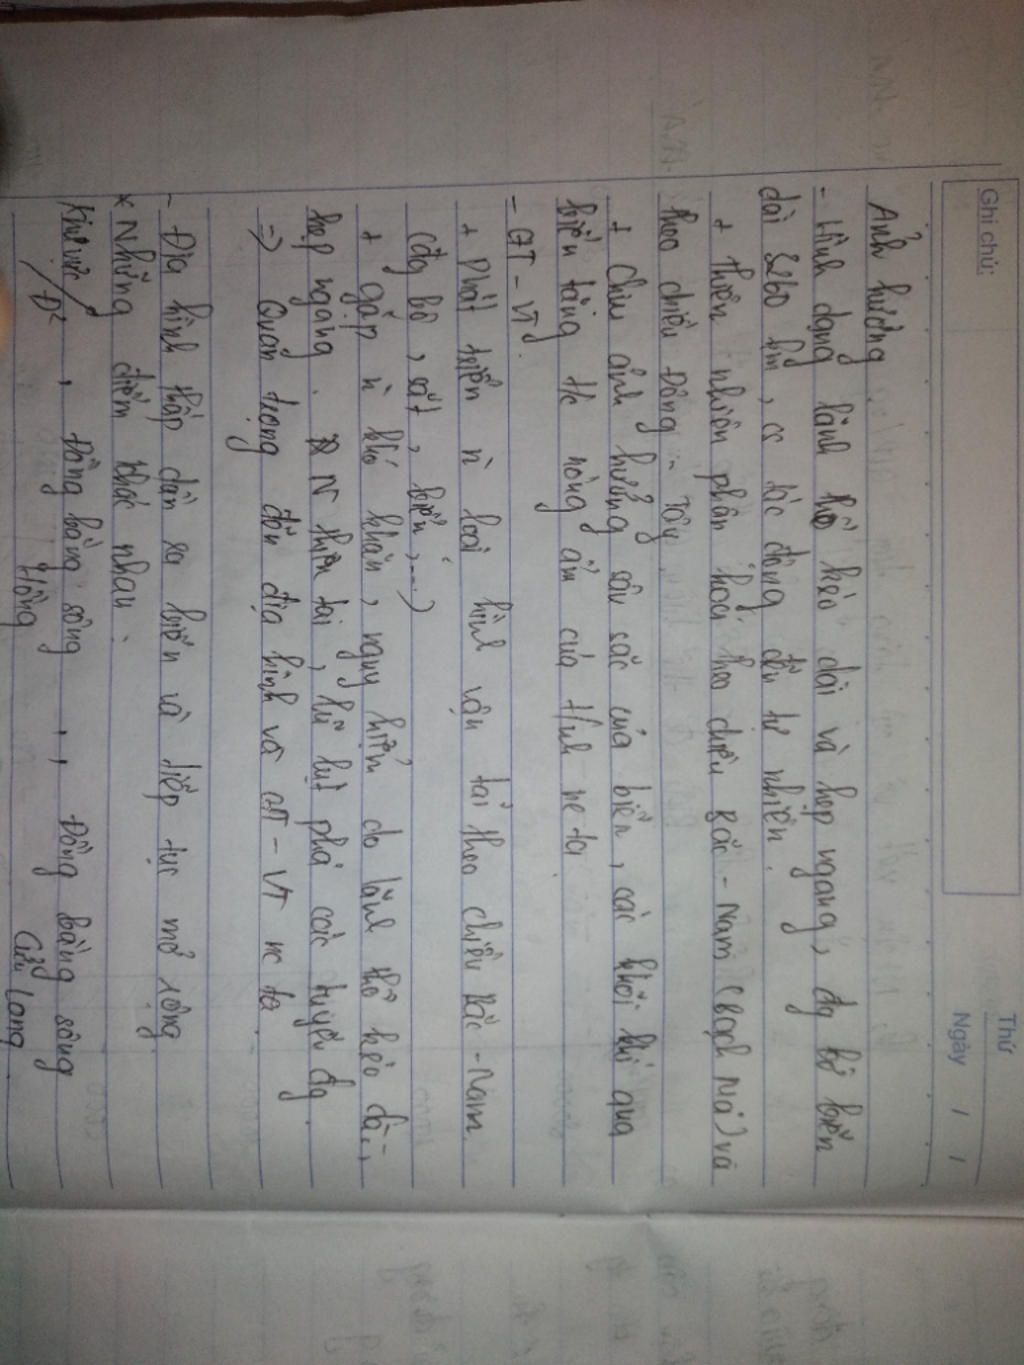 Ghi chú:
Thứ
Ngày / /
Ảnh hưởng
- Hình dạng lãnh thổ kéo dài và hẹp ngang, đg bờ biển
dài 3260 km, có tác động đến tự nhiên.
+ thiên nhiên phân hoá theo chiều Bắc - Nam (Bạch Mã) và
theo chiều Đông - Tây
+ chịu ảnh hưởng sâu sắc của biển, các khối khí qua
biển tăng tc nóng ẩm của t/nh nc ta.
- GT - VT
+ Phát triển n` loại hình vận tải theo chiều Bắc - Nam
(đg bộ, sắt, biển,...)
+ gặp n` khó khăn, nguy hiểm do lãnh thổ kéo dài,
hẹp ngang. N thiên tai, lũ lụt phá các tuyến đg
=> Quan trọng đến địa hình và GT - VT nc ta
- Địa hình thấp dần ra biển và tiếp tục mở rộng
* Những điểm khác nhau:
Khu vực / Đ² , Đồng bằng sông , , Đồng bằng sông
Hồng Cửu Long